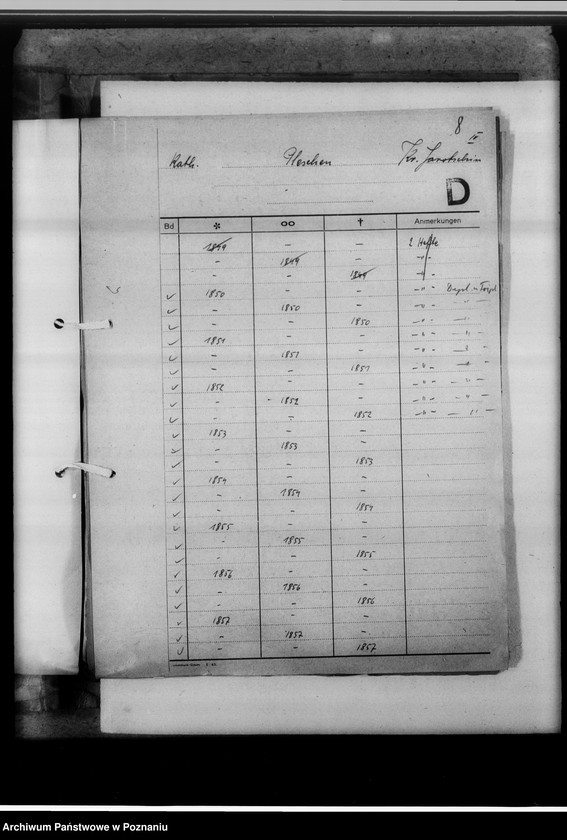 8
IV
Kath. Pleschen Kr. Jarotschin
D
Bd * oo † Anmerkungen
1849 – – 2 Hefte
– 1849 – –"–
– – 1849 –"–
✓ 1850 – – –"–
✓ – 1850 – –"– –"–
✓ – – 1850 –"– –"–
✓ 1851 – – –"– –"–
✓ – 1851 – –"– –"–
✓ – – 1851 –"– –"–
✓ 1852 – – –"– –"–
✓ – 1852 – –"– –"–
✓ – – 1852 –"– –"–
✓ 1853 – –
✓ – 1853 –
✓ – – 1853
✓ 1854 – –
✓ – 1854 –
✓ – – 1854
✓ 1855 – –
✓ – 1855 –
✓ – – 1855
✓ 1856 – –
✓ – 1856 –
✓ – – 1856
✓ 1857 – –
✓ – 1857 –
✓ – – 1857
Archiwum Państwowe w Poznaniu